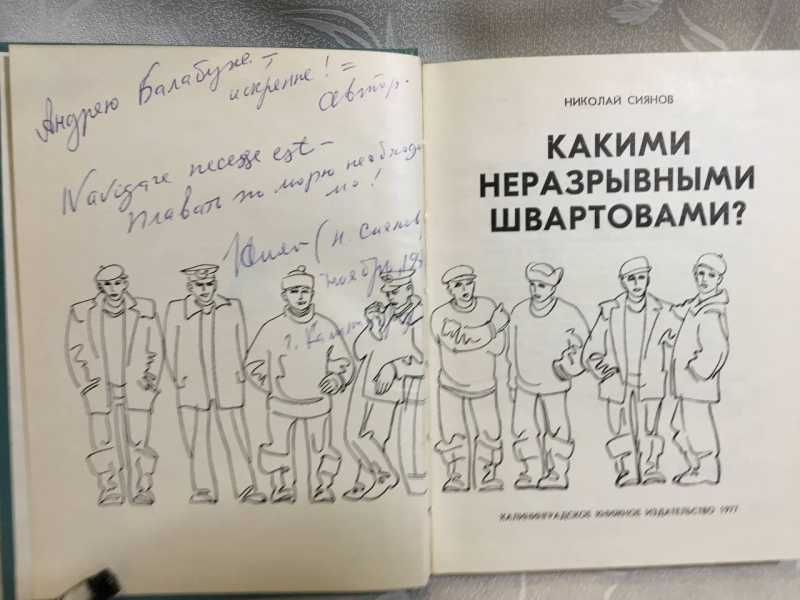 Андрею Балабухе –
искренне! =
автор.
Navigare necesse est –
Плавать по морю необходи
мо!
(Н. Сиянов
ноябрь
г.
НИКОЛАЙ СИЯНОВ
КАКИМИ
НЕРАЗРЫВНЫМИ
ШВАРТОВАМИ?
КАЛИНИНГРАДСКОЕ КНИЖНОЕ ИЗДАТЕЛЬСТВО 1977